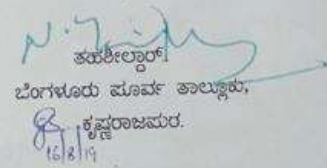 ತಹಶೀಲ್ದಾರ್
ಬೆಂಗಳೂರು ಪೂರ್ವ ತಾಲ್ಲೂಕು,
ಕೃಷ್ಣರಾಜಪುರ.
16/8/19